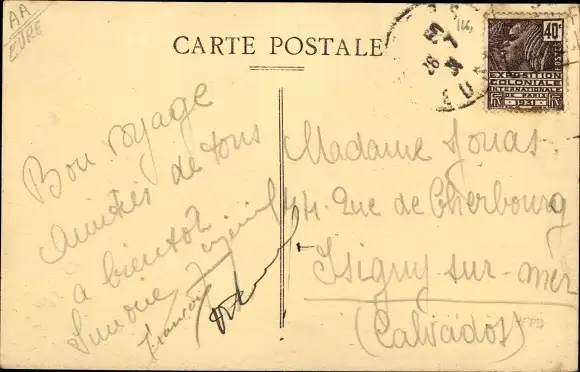 AA
EURE
CARTE POSTALE
40c
POSTES
EXPOSITION
COLONIALE
INTERNATIONALE
DE PARIS
1931
Bon voyage
Amitiés de tous
a bientot
Simone
Francois
Madame Jouas
44 Rue de Cherbourg
Isigny-sur-mer
(Calvados)